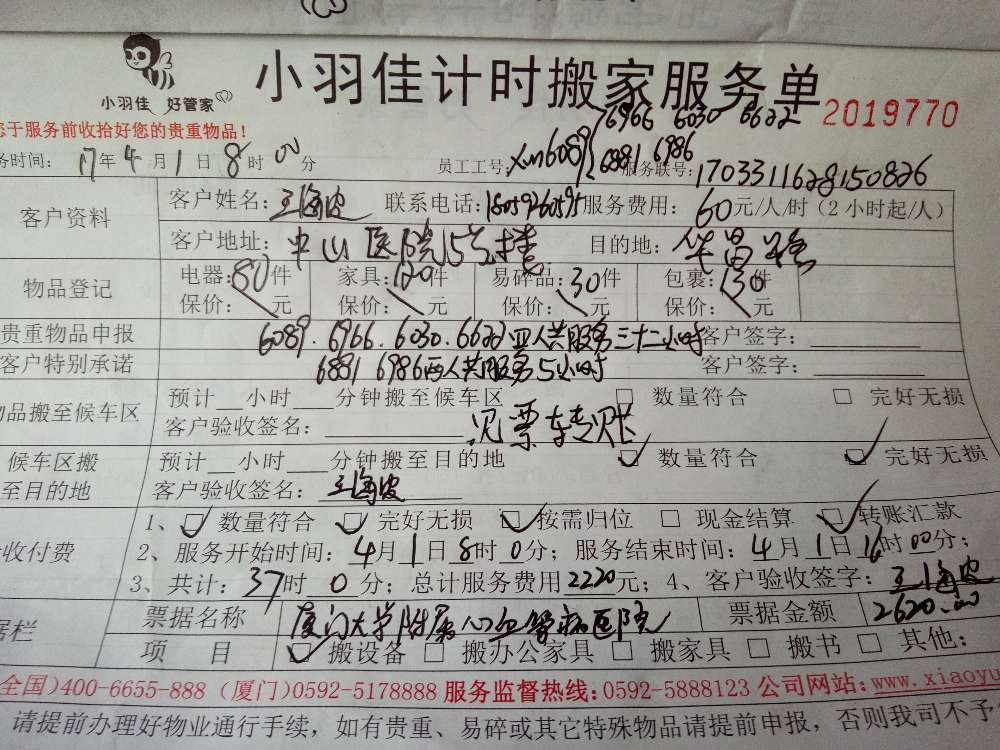 小羽佳 好管家
小羽佳计时搬家服务单
2019770
您于服务前收拾好您的贵重物品!
务时间: 17年4月1日8时00分 员工工号: xm6089 6966 6030 6622
6881 6986
服务联号: 1703311628150826
客户资料 客户姓名: 王海波 联系电话: 18059260595 服务费用: 60元/人/时(2小时起/人)
客户地址: 中山医院15号楼 目的地:
物品登记 电器:80件 家具:120件 易碎品:30件 包裹:130件
保价: 元 保价: 元 保价: 元 保价: 元
贵重物品申报 6089.6966.6030.6622四人共服务三十二小时 客户签字:
客户特别承诺 6881 6986两人共服务5小时 客户签字:
物品搬至候车区 预计__小时___分钟搬至候车区 □ 数量符合 □ 完好无损
客户验收签名: 见票转账
候车区搬至目的地 预计__小时___分钟搬至目的地 ☑ 数量符合 ☑ 完好无损
客户验收签名: 王海波
收付费 1、☑ 数量符合 ☑ 完好无损 ☑ 按需归位 □ 现金结算 ☑ 转账汇款
2、服务开始时间: 4月1日8时0分; 服务结束时间: 4月1日16时00分;
3、共计: 37时0分; 总计服务费用2220元; 4、客户验收签字: 王海波
据栏 票据名称 厦门大学附属心血管病医院 票据金额 2620.00
项 目 ☑ 搬设备 □ 搬办公家具 □ 搬家具 □ 搬书 □ 其他:
全国)400-6655-888 (厦门)0592-5178888 服务监督热线:0592-5888123 公司网站:www.xiaoyu
请提前办理好物业通行手续,如有贵重、易碎或其它特殊物品请提前申报,否则我司不予